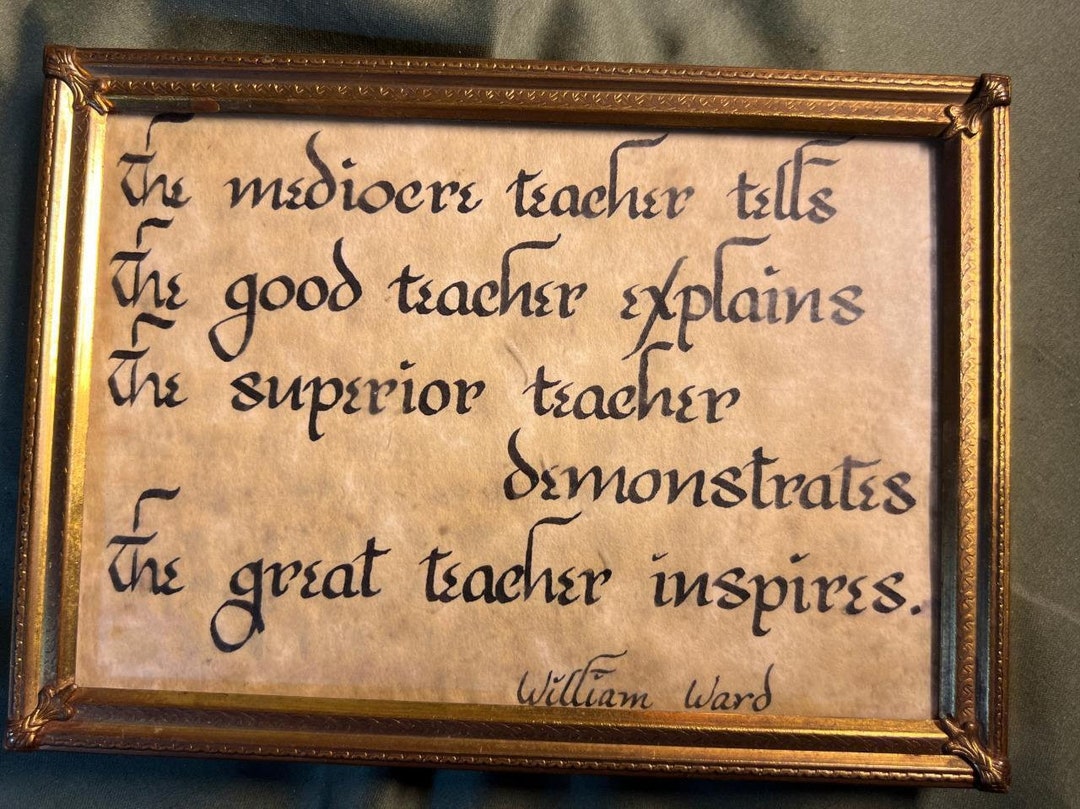 The mediocre teacher tells
The good teacher explains
The superior teacher
demonstrates
The great teacher inspires.
William Ward